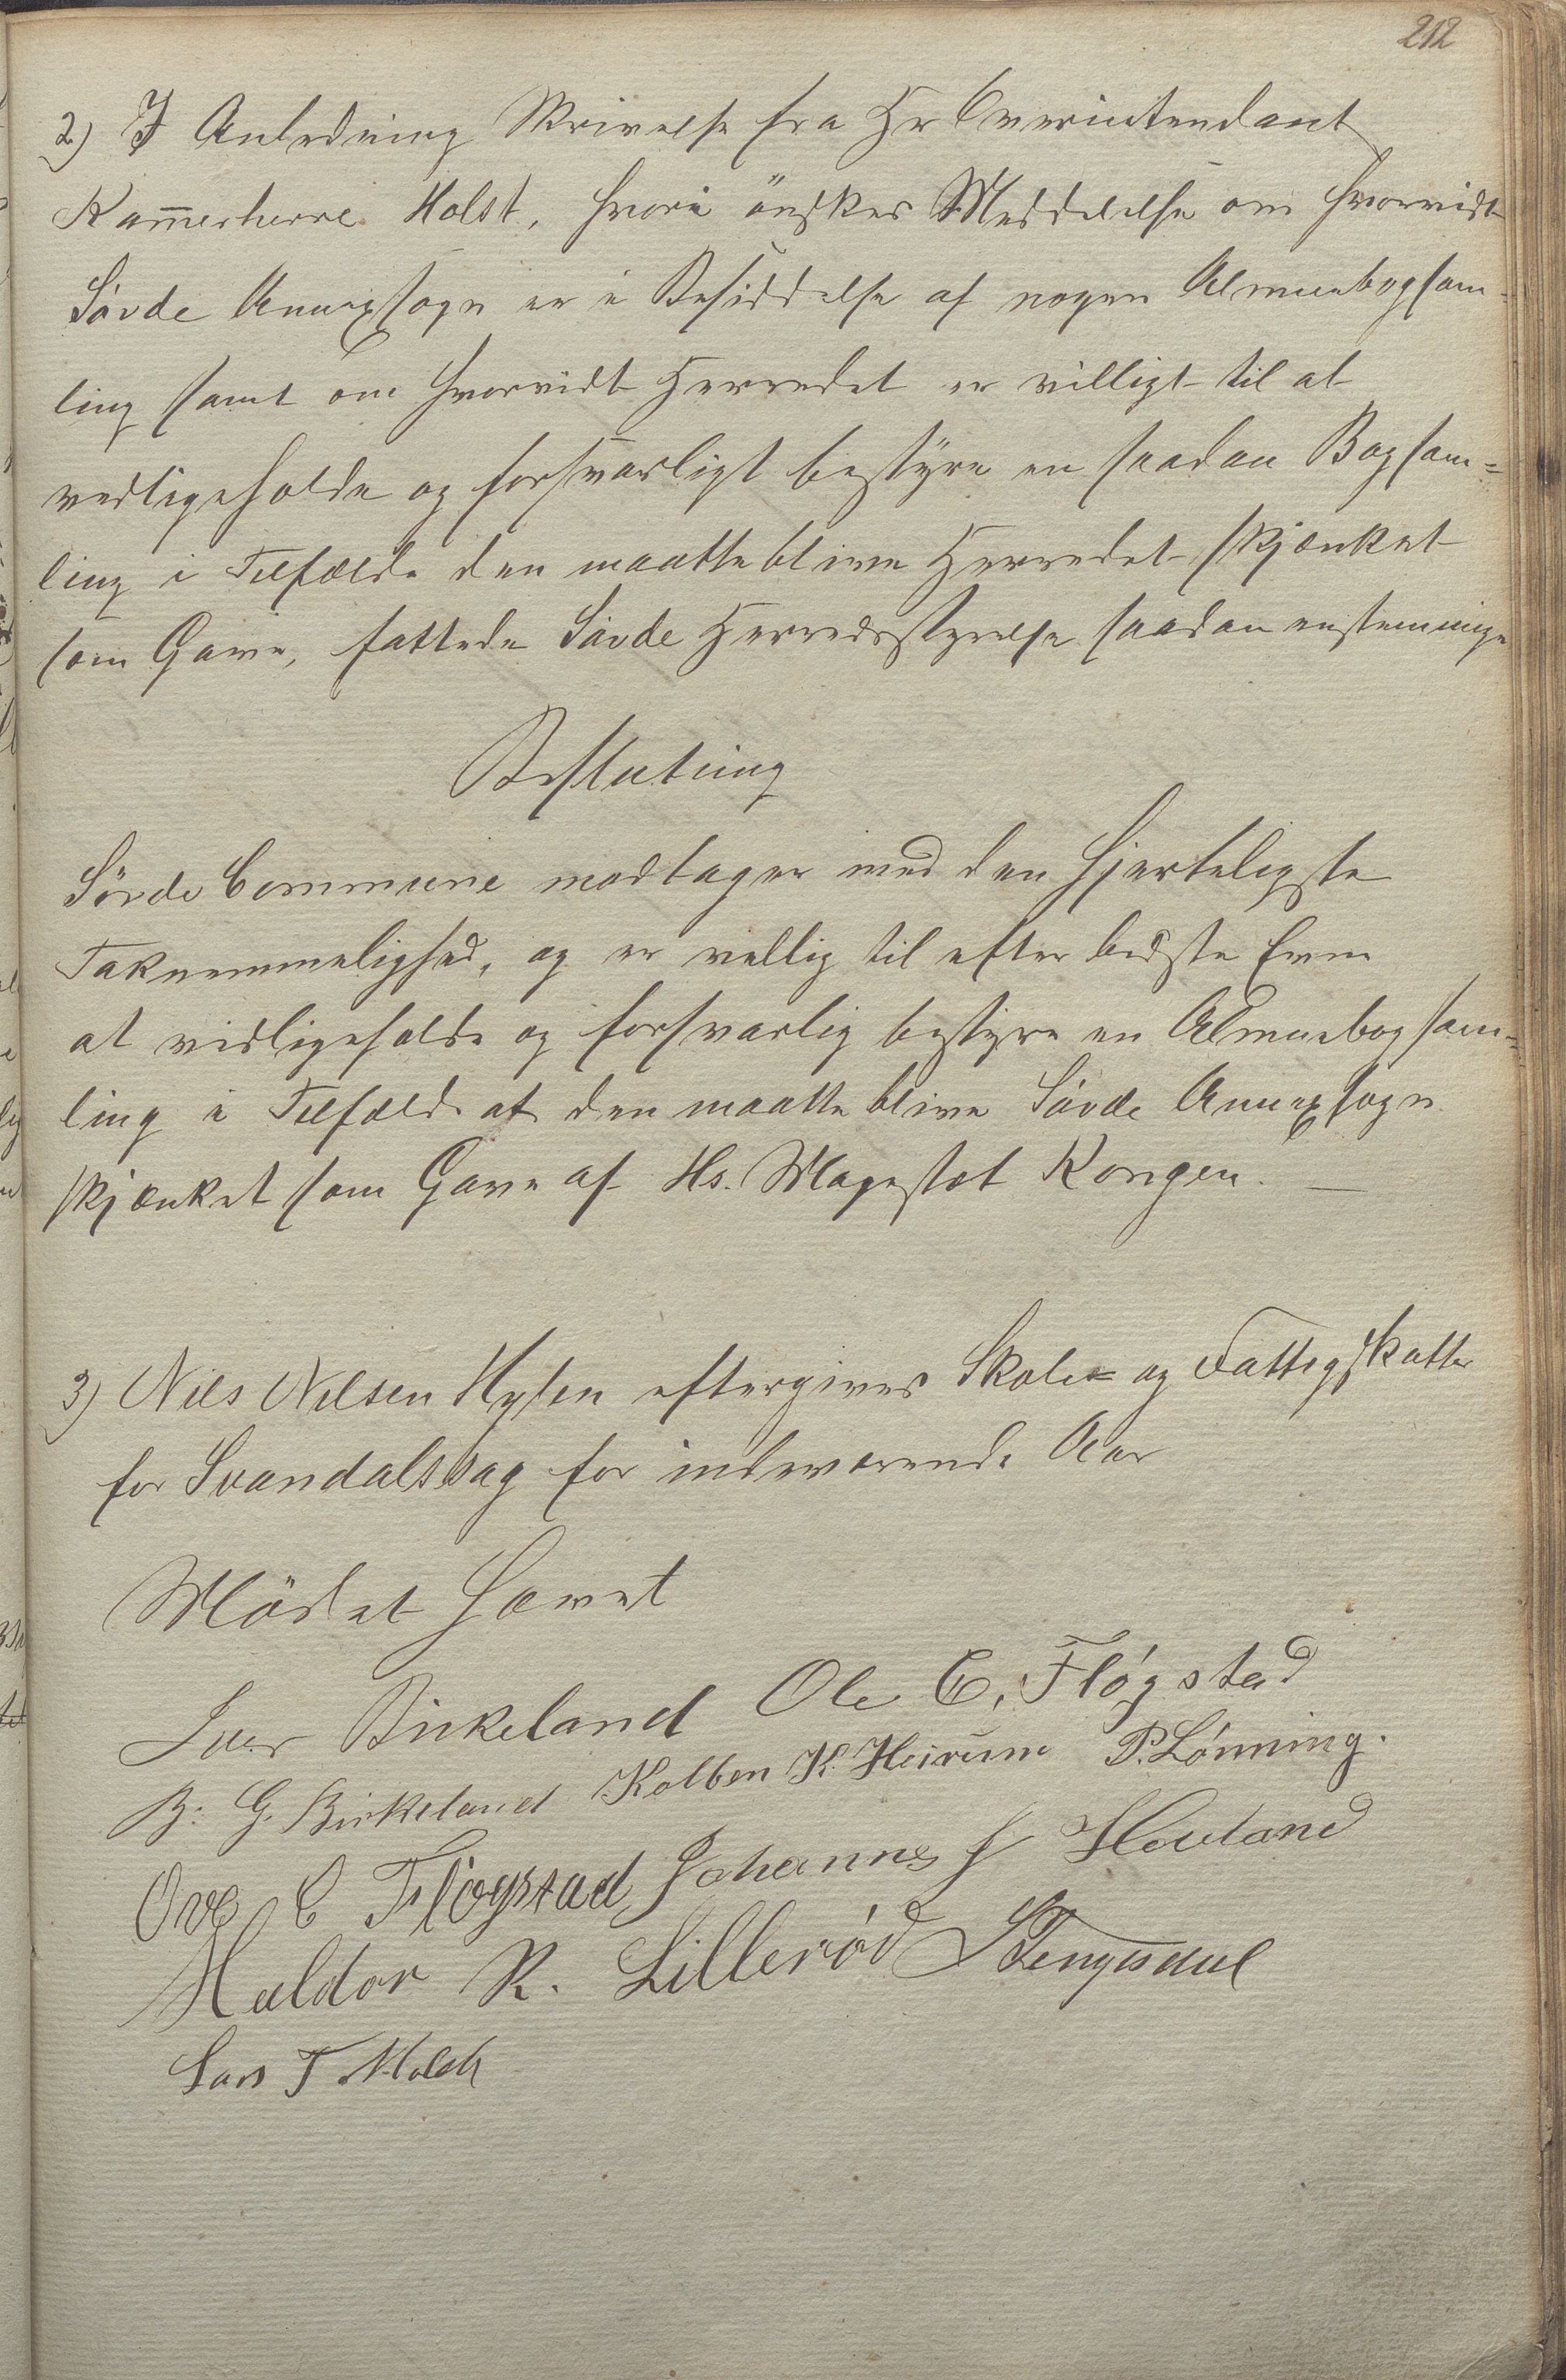 212
2) I Anledning Skrivelse fra Hr Overintendant
Kam̅erherre Holst, hvori önskes Meddelelse om hvorvidt
Søvde Annexsogn er i Besiddelse af nogen Almuebogsam=
ling samt om hvorvidt Herredet er villigt til at
vedligeholde og forsvarligt bestyre en saadan Bogsam=
ling i Tilfælde den maatte blive Herredet skjænket
som Gave, fattede Søvde Herredsstyrelse saadan enstemmige
Beslutning
Søvde Commune modtager med den hjerteligste
Taknemmelighed, og er vellig til efter bedste Evne
at vedligeholde og forsvarlig bestyre en Almuebogsam=
ling i Tilfælde at den maatte blive Søvde Annexsogn
skjænket som Gave af Hs. Magestæt Kongen. —
3) Niels Nilsen Hylen eftergives Skole= og Fattigskatter
for Svandalssag for indeværende Aar
Mödet hævet
Iver Birkeland Ole C. Flógstad
B. G. Birkeland Kolben K. Heirum P. Lónning.
Ove C Flógstad Johannes J Hovland
Haldor R. Lilleród S Tengesdal
Lars T Molde